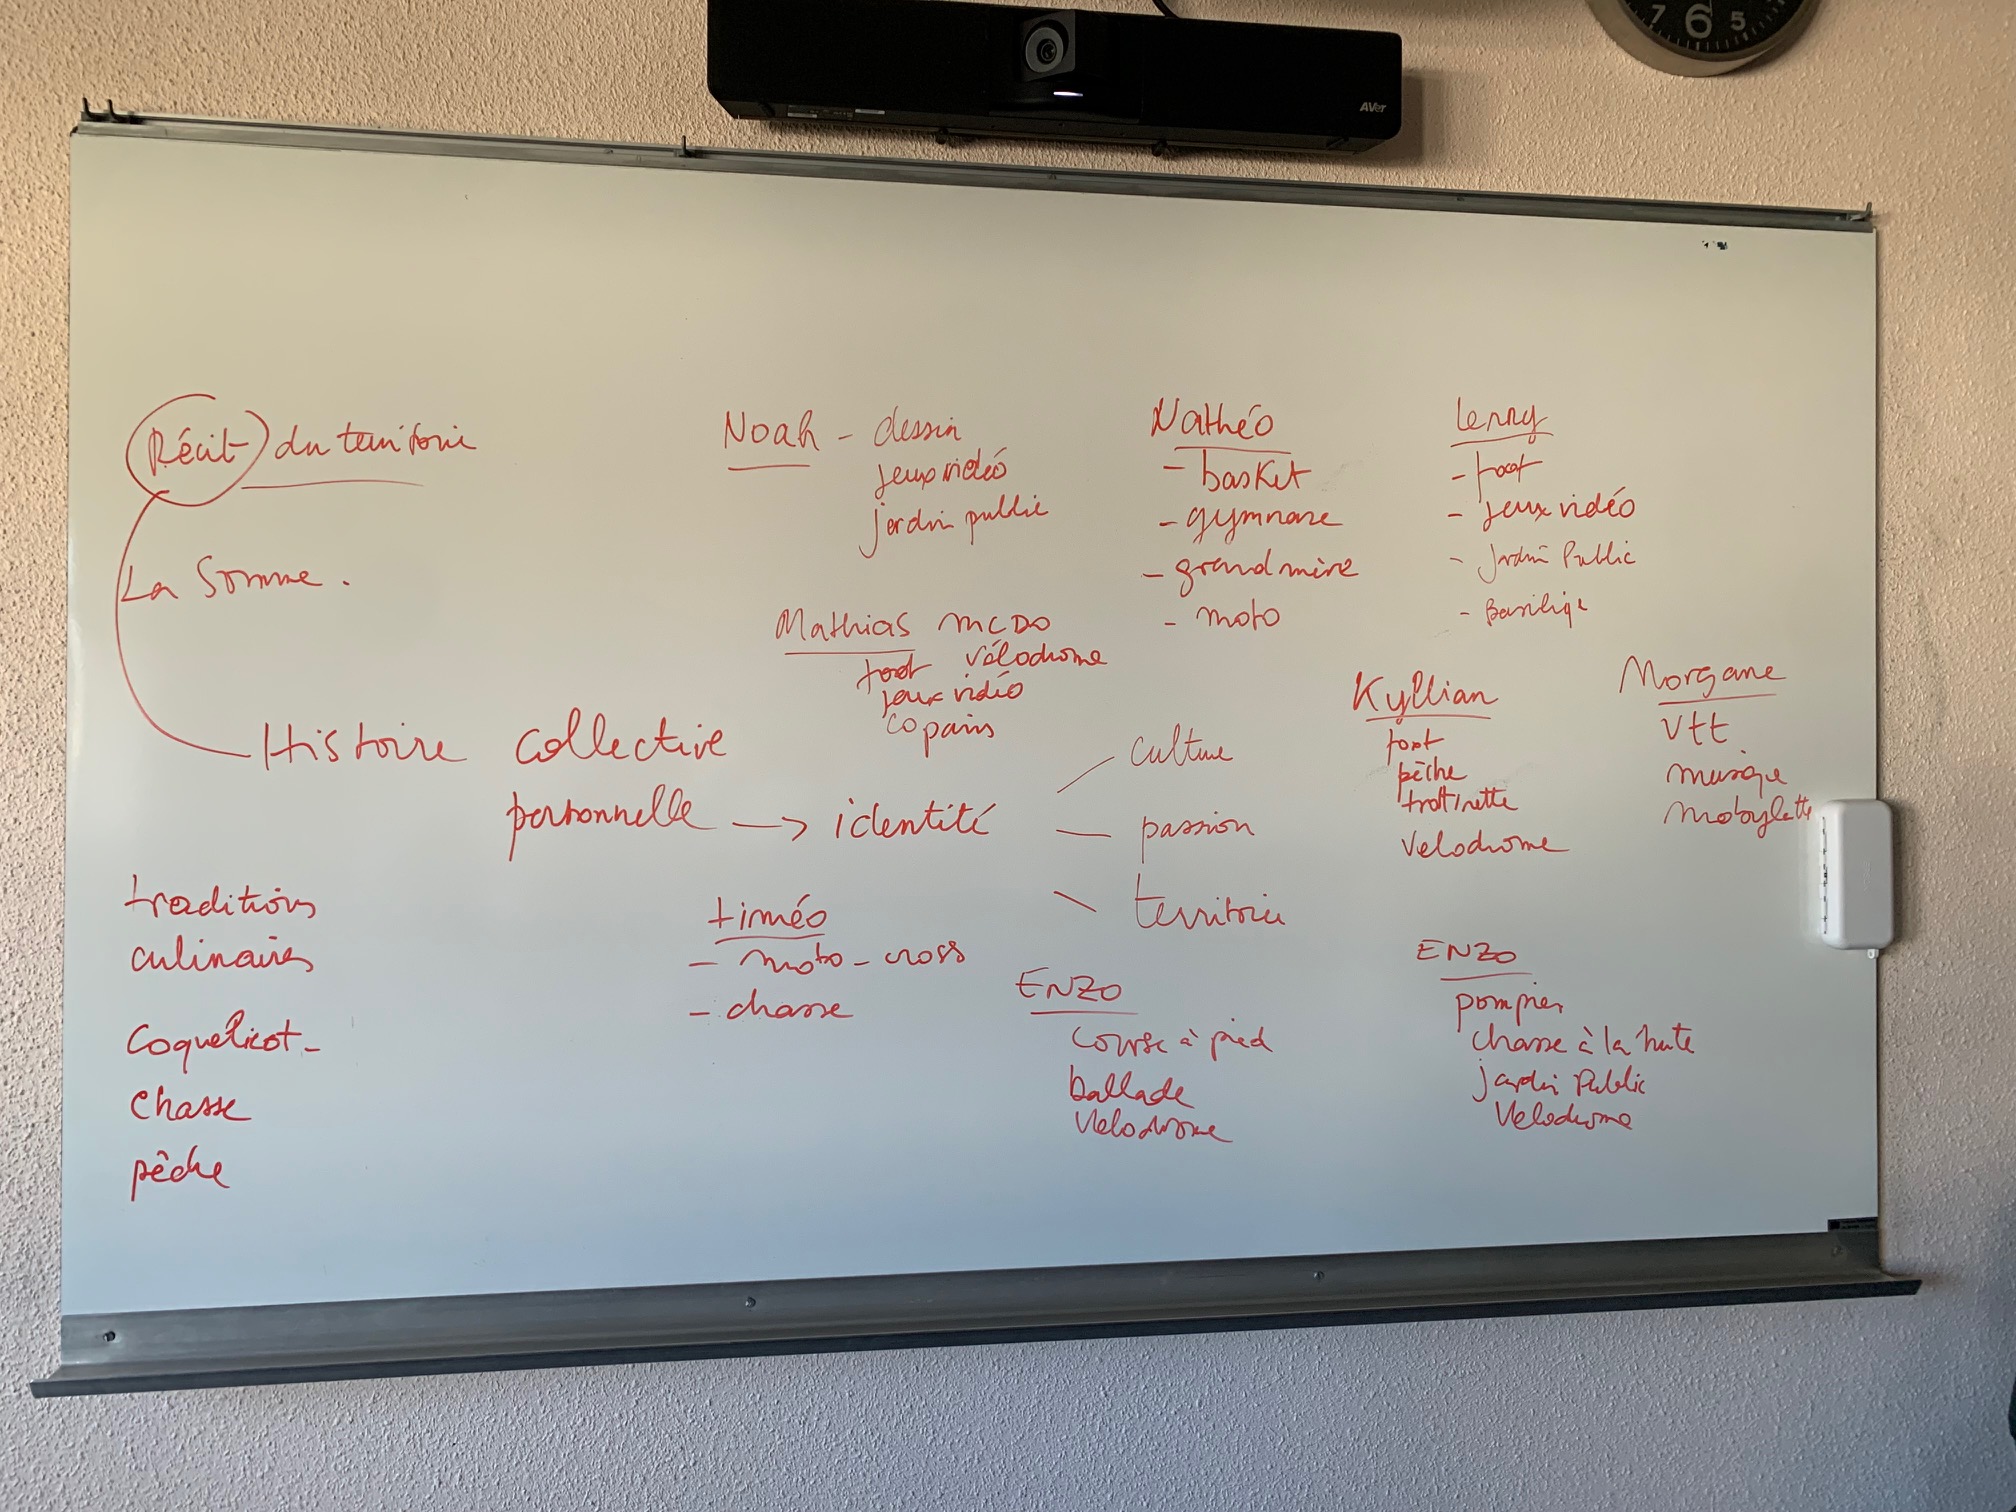 AVer
7 6 5
Récit du territoire
La Somme.
Histoire collective
personnelle -> identité
culture
passion
territoire
traditions
culinaires
Coquelicot -
chasse
pêche
Noah - dessin
jeux vidéo
jardin public
Mathias MCDO
foot vélodrome
jeux vidéo
copains
Nathéo
- basket
- gymnase
- grand mère
- moto
Lenny
- foot
- jeux vidéo
- Jardin Public
- Basiliqe
Kyllian
foot
pêche
trottinette
Velodrome
Morgane
Vtt
musique
mobylette
timéo
- moto-cross
- chasse
ENZO
course à pied
ballade
Velodrome
ENZO
pompier
chasse à la hute
jardin Public
Velodrome